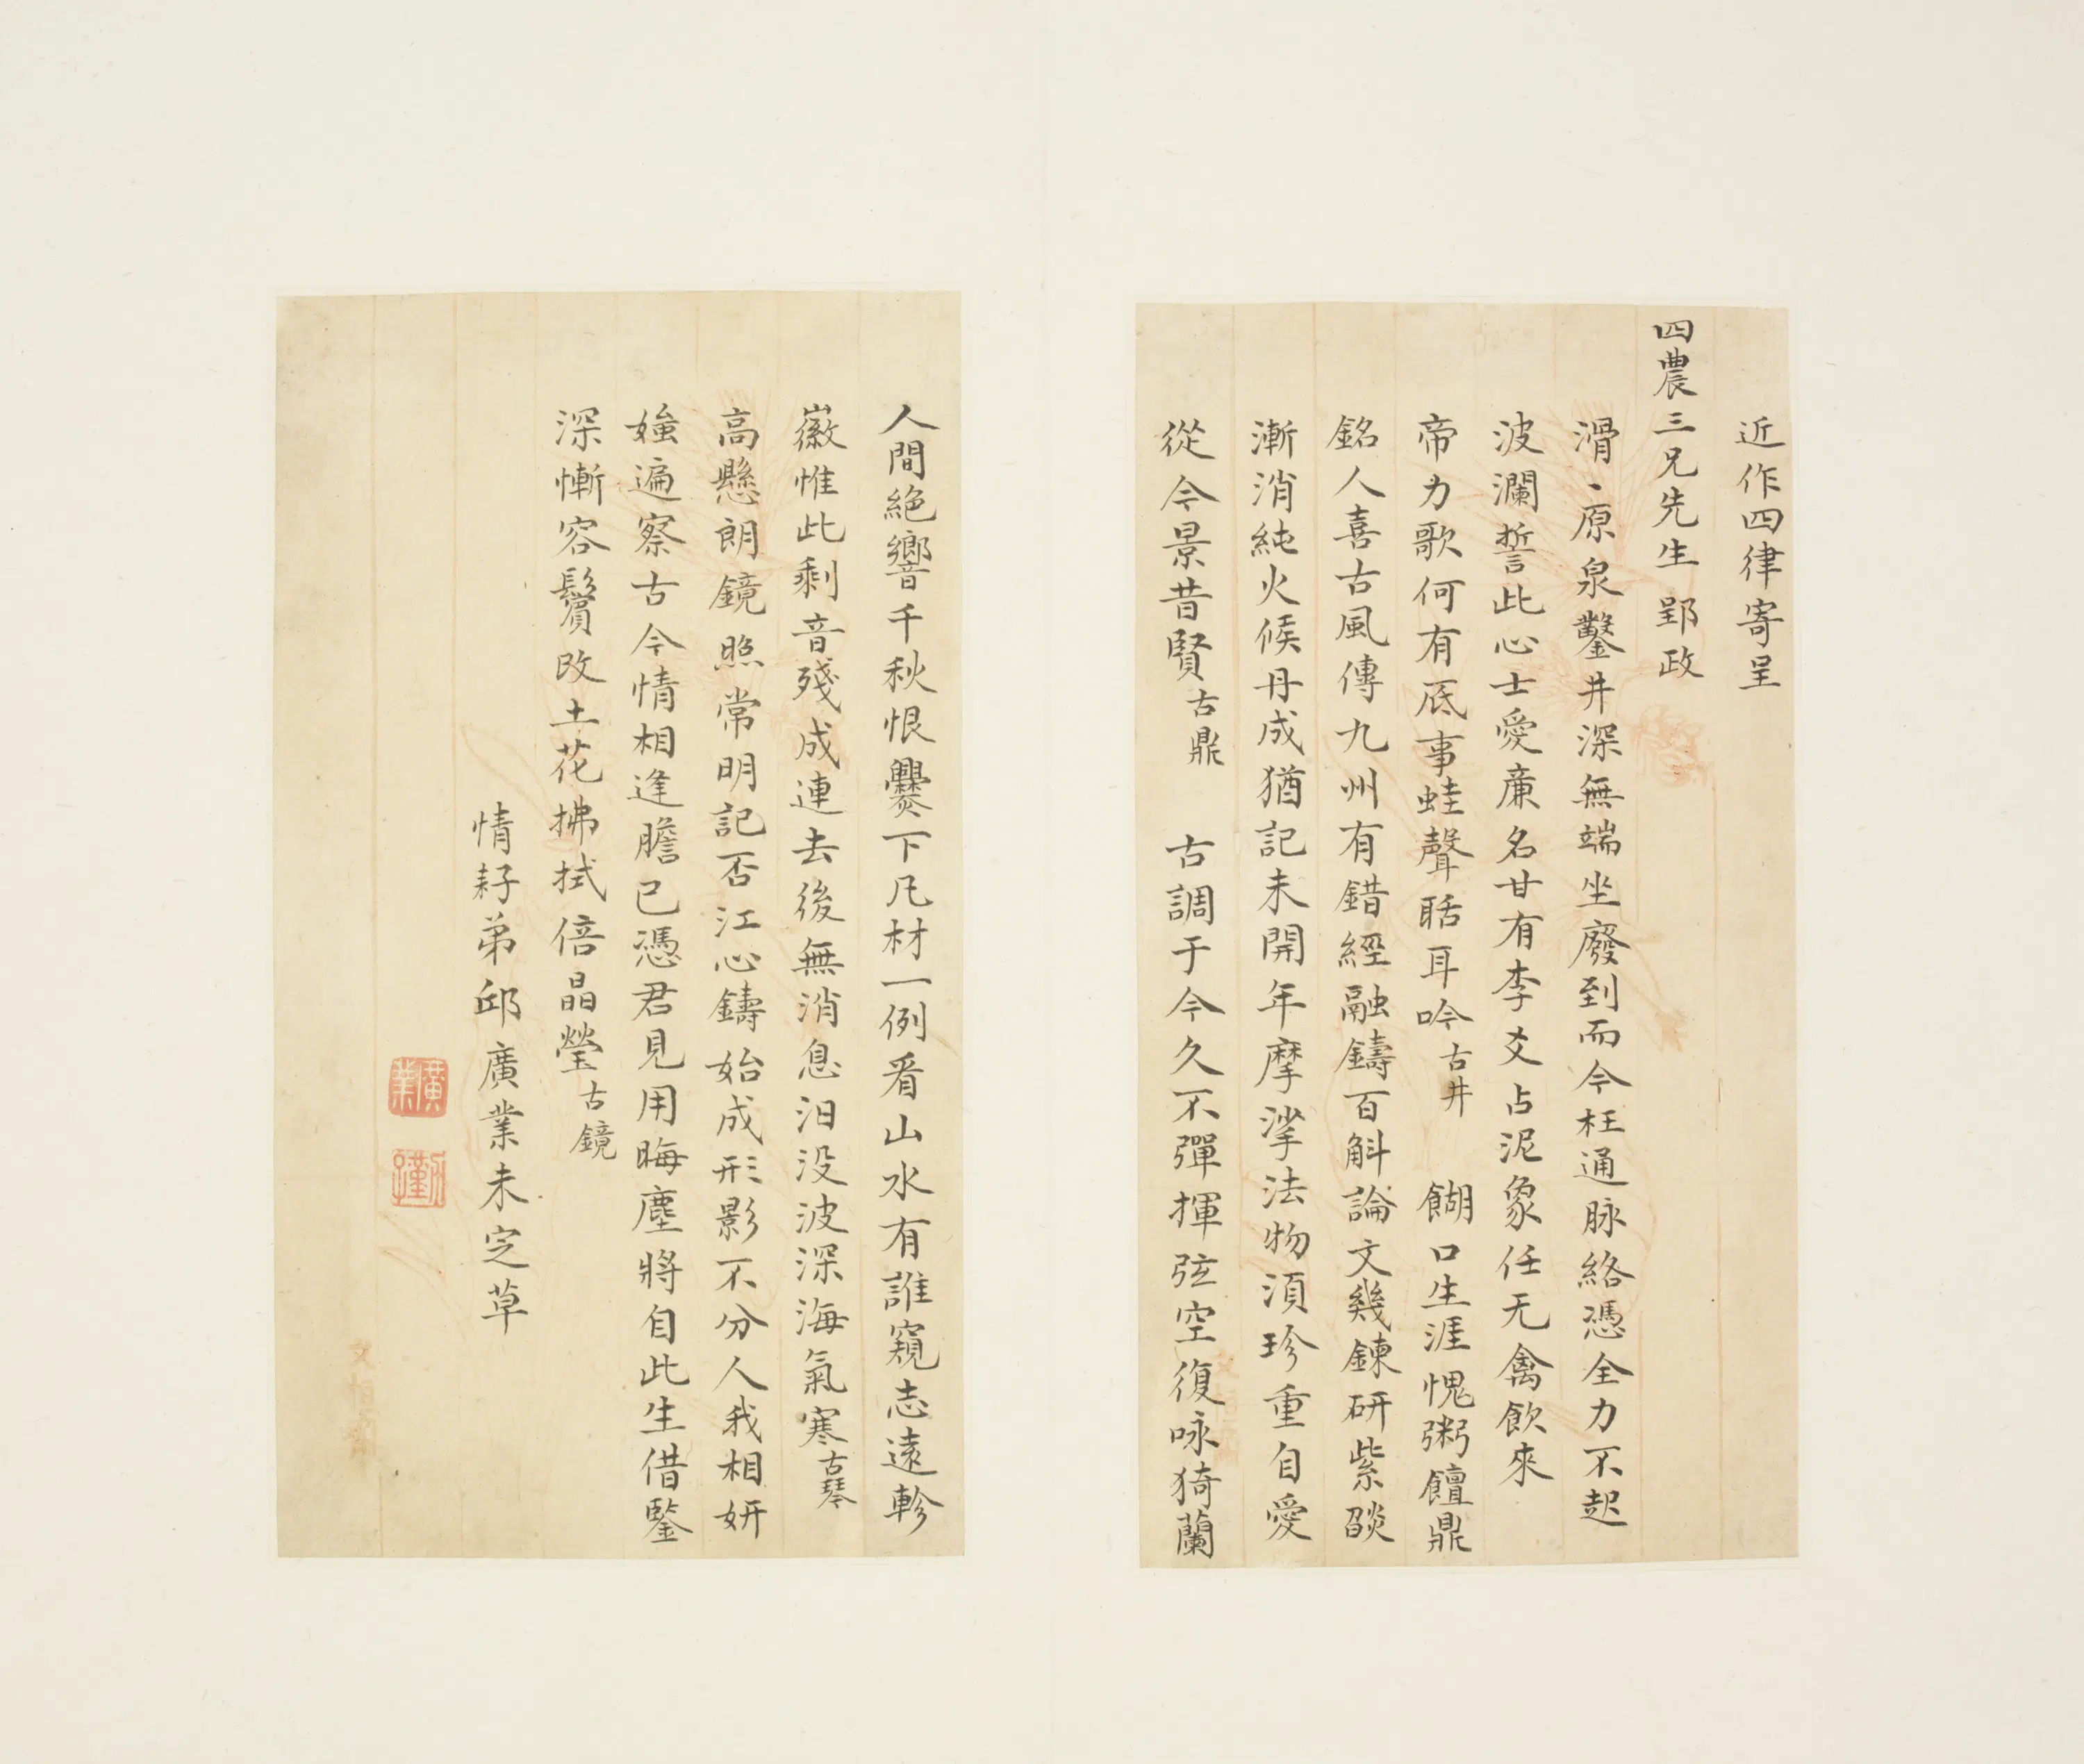 近作四律寄呈
四農三兄先生郢政
滑丶原泉鑿井深無端坐廢到而今枉通脉絡憑全力不起
波瀾誓此心士愛廉名甘有李爻占泥象任无禽飲來
帝力歌何有底事蛙聲聒耳吟古井 餬口生涯愧粥饘鼎
銘人喜古風傳九州有錯經融鑄百斛論文幾鍊研紫燄
漸消純火候丹成猶記未開年摩挲法物須珍重自愛
從今景昔賢古鼎 古調于今久不彈揮弦空復咏猗蘭
人間絕響千秋恨爨下凡材一例看山水有誰窺志遠軫
徽惟此剩音殘成連去後無消息汨没波深海氣寒古琴
高懸朗鏡照常明記否江心鑄始成形影不分人我相妍
媸遍察古今情相逢膽已憑君見用晦塵將自此生借鑒
深慚容鬢改土花拂拭倍晶瑩古鏡
情耔弟邱廣業未定草
廣業